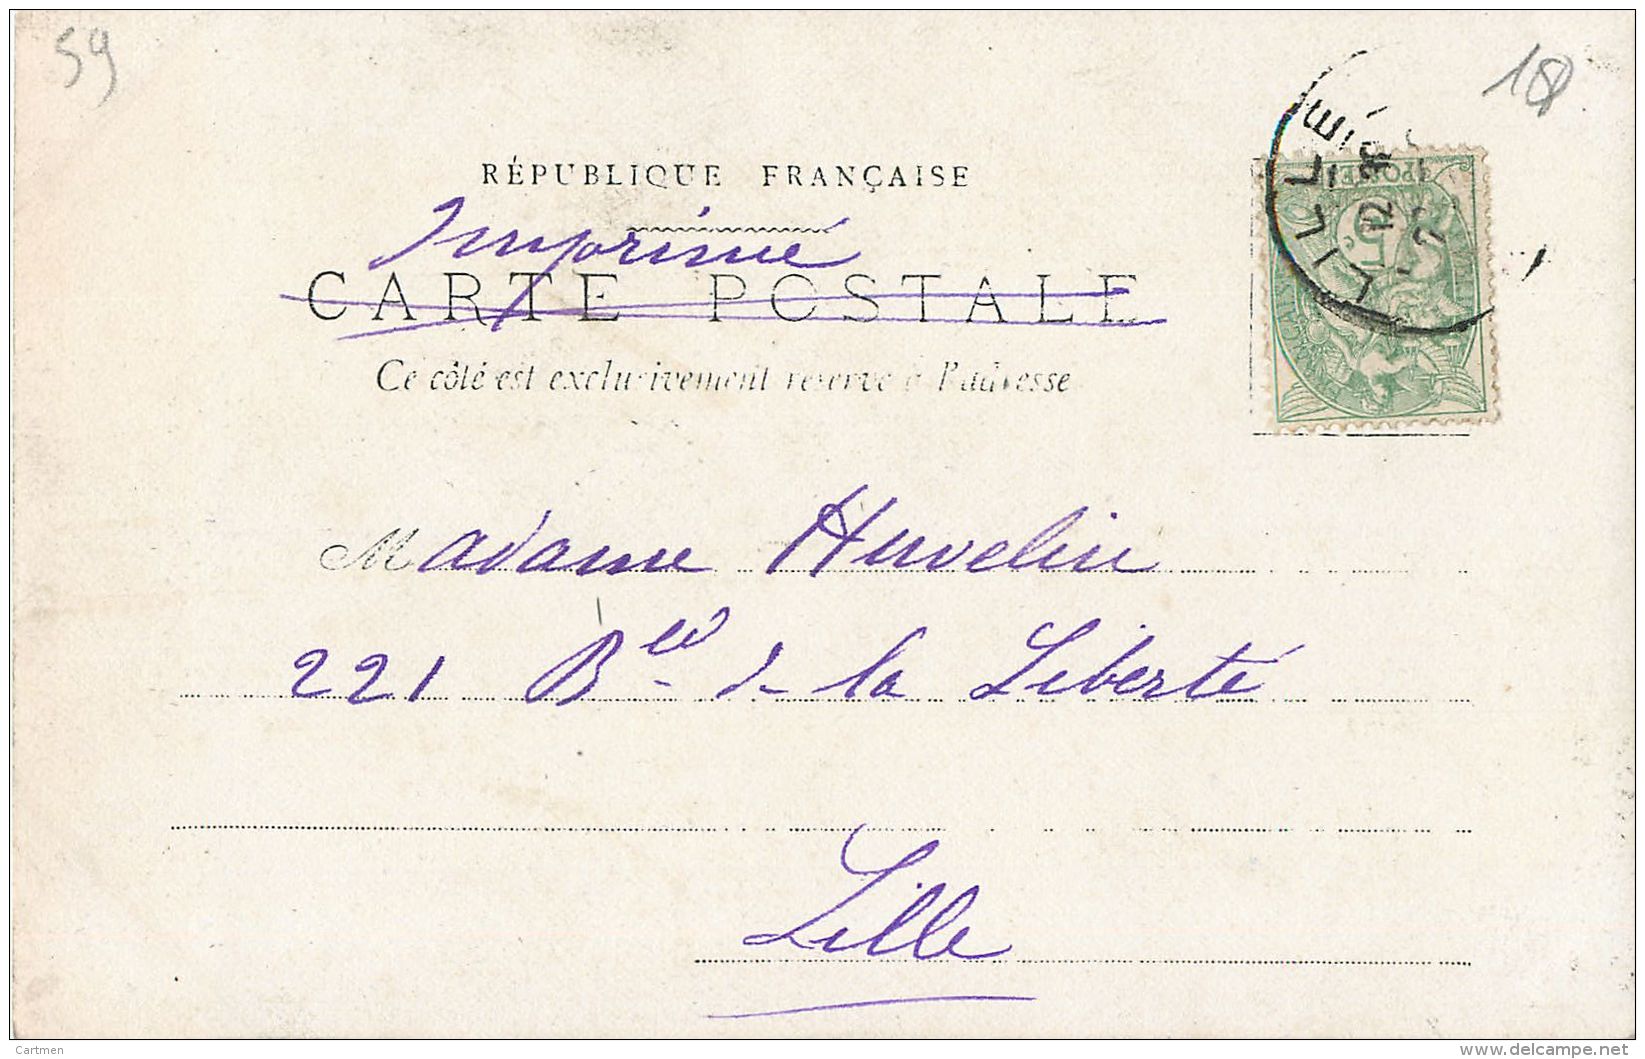 59
18
RÉPUBLIQUE FRANÇAISE
Imprimé
CARTE POSTALE
Ce côté est exclusivement réservé à l'adresse
LILLE
12
5c
Madame Huvelin
221 Bld de la Liberté
Lille
Cartmen
www.delcampe.net